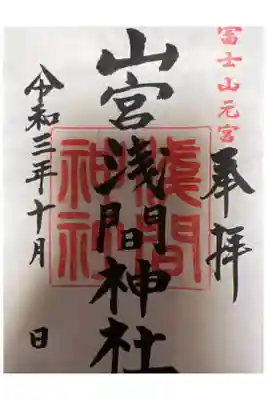 富士山元宮
奉拝
山宮浅間神社
浅間
神社
令和三年十月 日